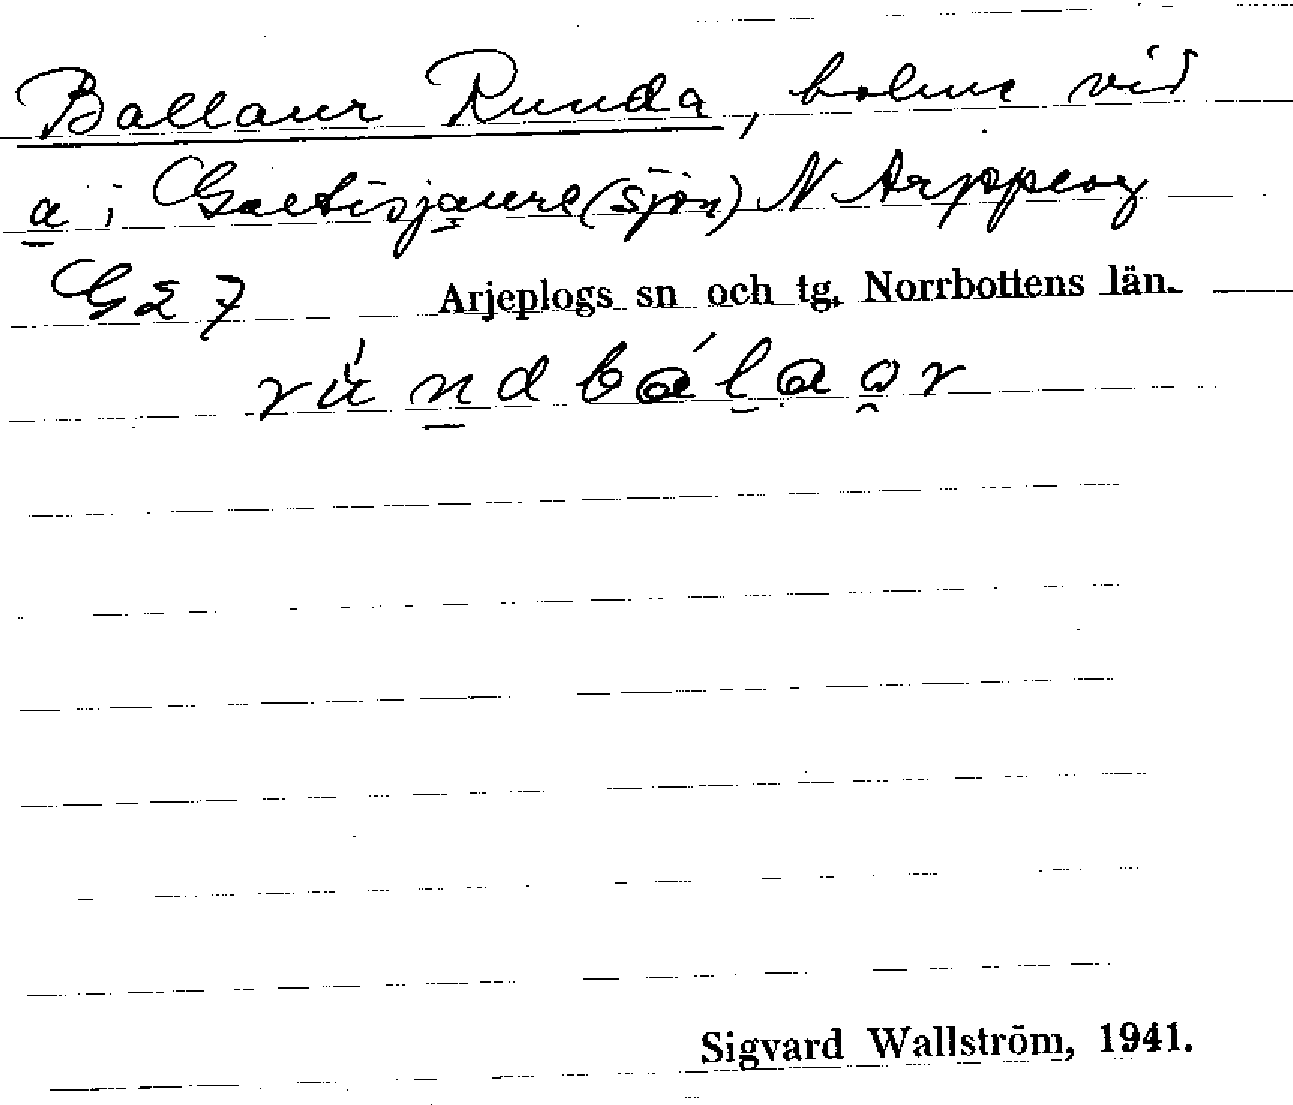 Ballaur Runda, holme vid
a i Gautisjaure (sjön) N Arjeplog
G 27
Arjeplogs sn och tg. Norrbottens län.
rúndbálaor
Sigvard Wallström, 1941.